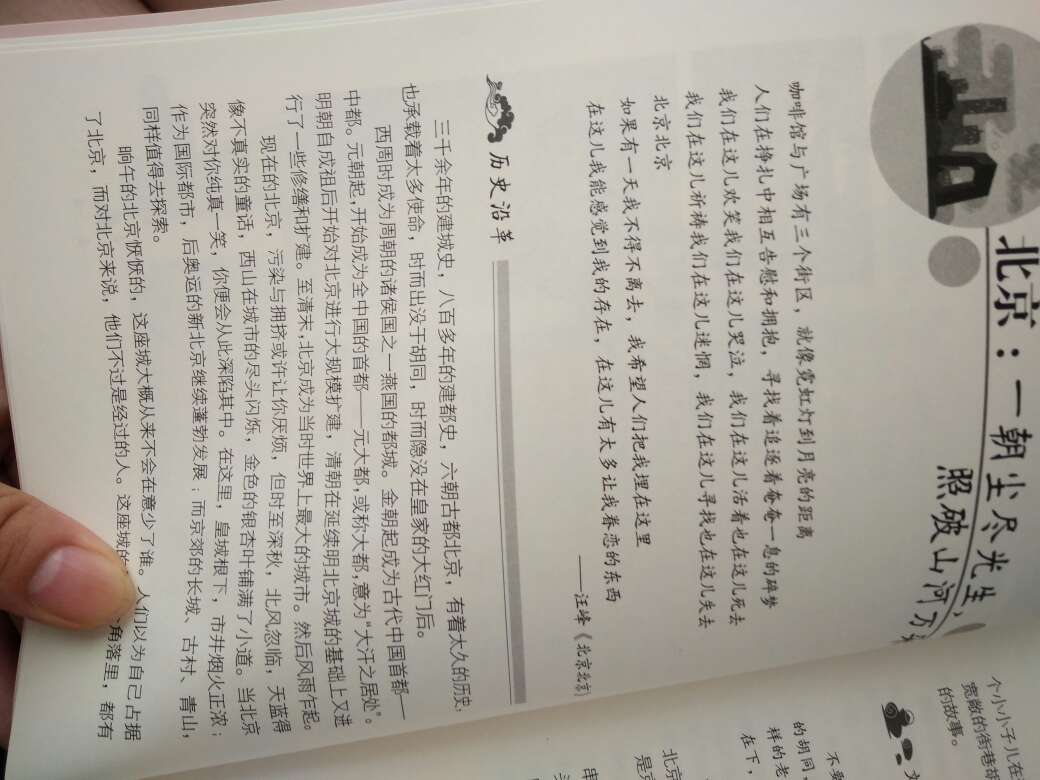 北京：一朝尘尽光生，
照破山河万
咖啡馆与广场有三个街区，就像霓虹灯到月亮的距离
人们在挣扎中相互告慰和拥抱，寻找着追逐着奄奄一息的碎梦
我们在这儿欢笑我们在这儿哭泣，我们在这儿活着也在这儿死去
我们在这儿祈祷我们在这儿迷惘，我们在这儿寻找也在这儿失去
北京北京
如果有一天我不得不离去，我希望人们把我埋在这里
在这儿我能感觉到我的存在，在这儿有太多让我眷恋的东西
——汪峰《北京北京》
历史沿革
三千余年的建城史，八百多年的建都史，六朝古都北京，有着太久的历史，
也承载着太多使命，时而出没于胡同，时而隐没在皇家的大红门后。
西周时成为周朝的诸侯国之一燕国的都城。金朝起成为古代中国首都——
中都。元朝起，开始成为全中国的首都——元大都，或称大都，意为“大汗之居处”。
明朝自成祖后开始对北京进行大规模扩建，清朝在延续明北京城的基础上又进
行了一些修缮和扩建。至清末，北京成为当时世界上最大的城市。然后风雨乍起。
现在的北京，污染与拥挤或许让你厌烦，但时至深秋，北风忽临，天蓝得
像不真实的童话，西山在城市的尽头闪烁，金色的银杏叶铺满了小道。当北京
突然对你纯真一笑，你便会从此深陷其中。在这里，皇城根下，市井烟火正浓；
作为国际都市，后奥运的新北京继续蓬勃发展；而京郊的长城、古村、青山，
同样值得去探索。
晌午的北京恹恹的，这座城大概从来不会在意少了谁。人们以为自己占据
了北京，而对北京来说，他们不过是经过的人。这座城的 角落里，都有
个小小子儿在
宽敞的街巷
的故事。
不
的胡同，
样的老
在下，
北京
是